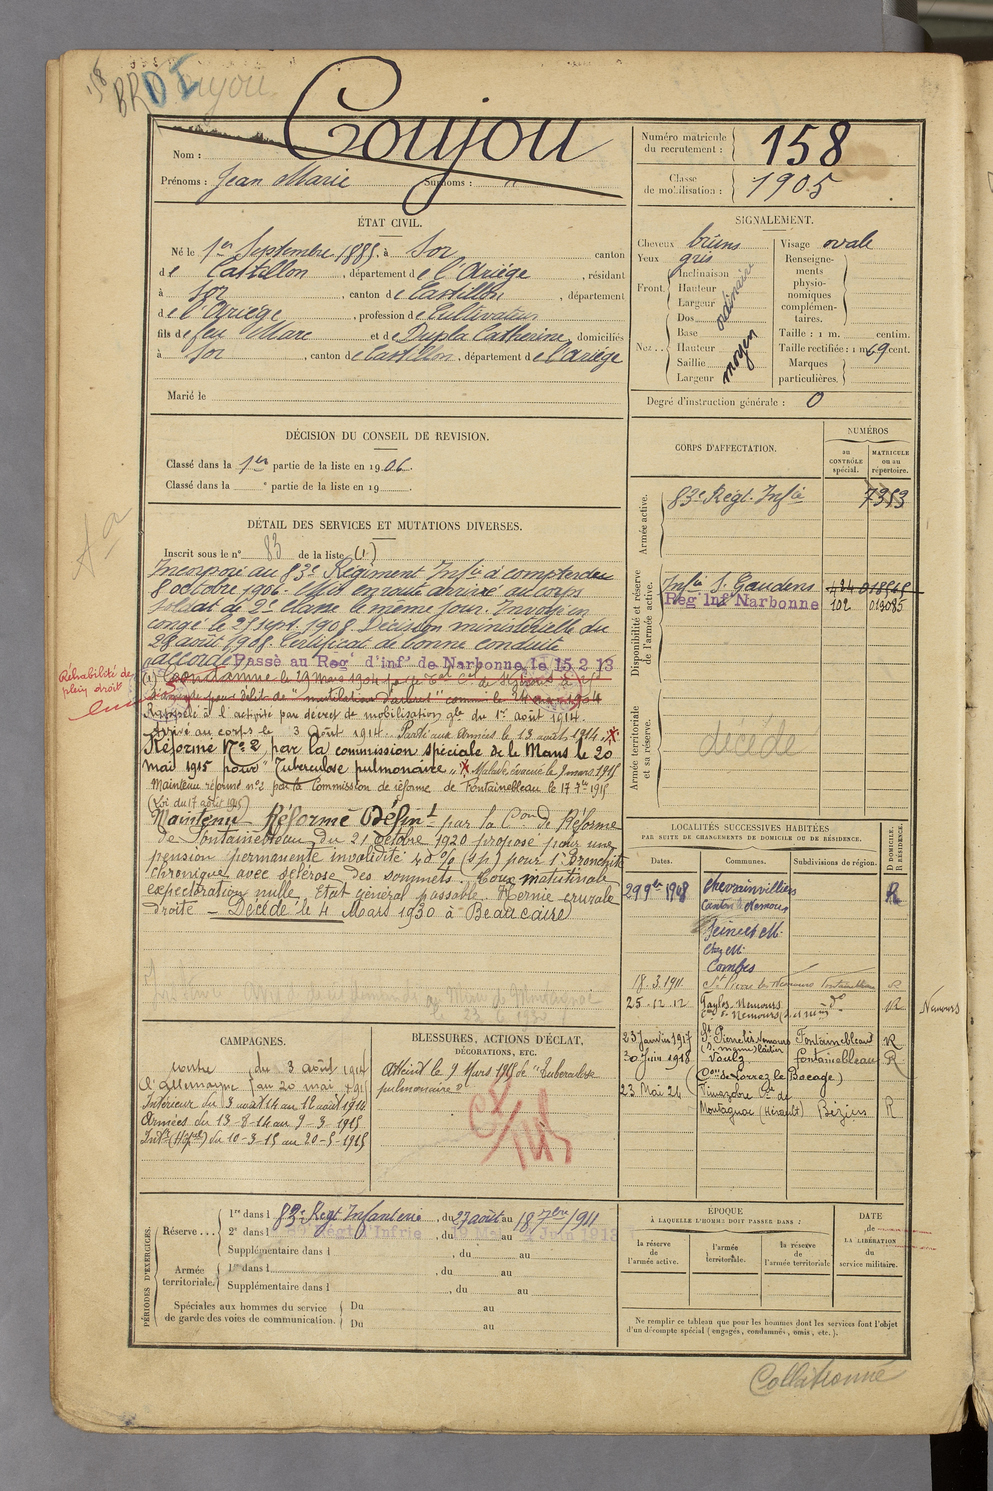 BRDI
Coujou
Nom :
Prénoms : Jean Marie Surnoms : "
Numéro matricule du recrutement : 158
Classe de mobilisation : 1905
ÉTAT CIVIL.
Né le 1er Septembre 1885, à Sor canton
de Castillon, département de l'Ariége, résidant
à Sor, canton de Castillon, département
de l'Ariége, profession de Cultivateur
fils de feu Marc et de Dupla Catherine, domiciliés
à Sor, canton de Castillon, département de l'Ariége
Marié le
SIGNALEMENT.
Cheveux bruns
Yeux gris
Front. Inclinaison
Hauteur
Largeur
ordinaire
Nez.. Dos
Base
Hauteur
Saillie
Largeur
moyen
Visage ovale
Renseignements physionomiques complémentaires.
Taille : 1 m. centim.
Taille rectifiée : 1 m 69 cent.
Marques particulières.
Degré d'instruction générale : 0
DÉCISION DU CONSEIL DE REVISION.
Classé dans la 1re partie de la liste en 1906.
Classé dans la " partie de la liste en 19
CORPS D'AFFECTATION.
NUMÉROS
au CONTRÔLE spécial.
MATRICULE ou au répertoire.
Armée active.
83e Régt. Infie 7353
Disponibilité et réserve de l'armée active.
Infie St Gaudens
Reg' Inf' Narbonne 102 013085
Armée territoriale et sa réserve.
décédé
DÉTAIL DES SERVICES ET MUTATIONS DIVERSES.
Inscrit sous le n° 83 de la liste (1)
Incorporé au 83e Régiment Infie à compter du
8 octobre 1906. Mis en route arrivé au corps
soldat de 2e Classe le même jour. Envoyé en
congé le 25 sept. 1908. Décision ministérielle du
28 août 1908. Certificat de bonne conduite
accordé. Passé au Reg' d'inf' de Narbonne le 15 2 13
Réhabilité de plein droit
(1) Condamné le 29 mars 1904 par le
pour délit de "mutilation d'arbres" commis le
Rappelé à l'activité par décret de mobilisation gle du 1er août 1914.
Arrivé au corps le 3 Août 1914. Parti aux Armées le 13 août 1914.
Réformé No 2, par la commission spéciale de le Mans le 20
mai 1915 pour "Tuberculose pulmonaire" Malade évacué le 9 mars 1915
Maintenu réformé n°2 par la Commission de réforme de Fontainebleau le 17 7bre 1915
(Loi du 17 août 1915)
Maintenu Réformé Défint par la Con de Réforme
de Fontainebleau du 21 octobre 1920 proposé pour une
pension permanente invalidité 40 % (s.p.) pour 1° bronchite
chronique avec sclérose des sommets. Toux matutinale
expectoration nulle. Etat général passable. Hernie crurale
droite — Décédé le 4 Mars 1930 à Beaucaire
LOCALITÉS SUCCESSIVES HABITÉES
PAR SUITE DE CHANGEMENTS DE DOMICILE OU DE RÉSIDENCE.
Dates. Communes. Subdivisions de région. D DOMICILE. R RÉSIDENCE.
29 9bre 1908 Chevrainvilliers R
Canton de Nemours
Seine et M.
Chez M.
Combes
18.3.1911 St Pierre les Nemours Fontainebleau
25.12.12 Nemours do R Nemours
23 Janvier 1917 St Pierre les Nemours Fontainebleau R
30 Juin 1918 Vaulx Fontainebleau R
(Con de Lorrez le Bocage)
23 Mai 24
Montagnac (Hérault) Béziers R
CAMPAGNES.
contre du 3 août 1914
l'Allemagne au 20 mai 1915
Intérieur du 3 août 14 au 12 août 1914
Armées du 13-8-14 au 9-3-1915
Intr (Hôpal) du 10-3-15 au 20-5-1915
BLESSURES, ACTIONS D'ÉCLAT,
DÉCORATIONS, ETC.
Atteint le 9 Mars 1915 de "Tuberculose
pulmonaire"
PÉRIODES D'EXERCICES.
Réserve ... 1re dans l 83e Regt Infanterie, du 27 août au 18 7bre 1911
2e dans l Rég' d'Infrie, du Mai au Juin 1913
Supplémentaire dans l , du au
Armée territoriale. 1re dans l , du au
Supplémentaire dans l , du au
Spéciales aux hommes du service de garde des voies de communication. Du au
Du au
ÉPOQUE
À LAQUELLE L'HOMME DOIT PASSER DANS :
la réserve de l'armée active.
l'armée territoriale.
la réserve de l'armée territoriale
DATE
de
LA LIBÉRATION
du
service militaire.
Ne remplir ce tableau que pour les hommes dont les services font l'objet
d'un décompte spécial (engagés, condamnés, omis, etc.).
Collationné